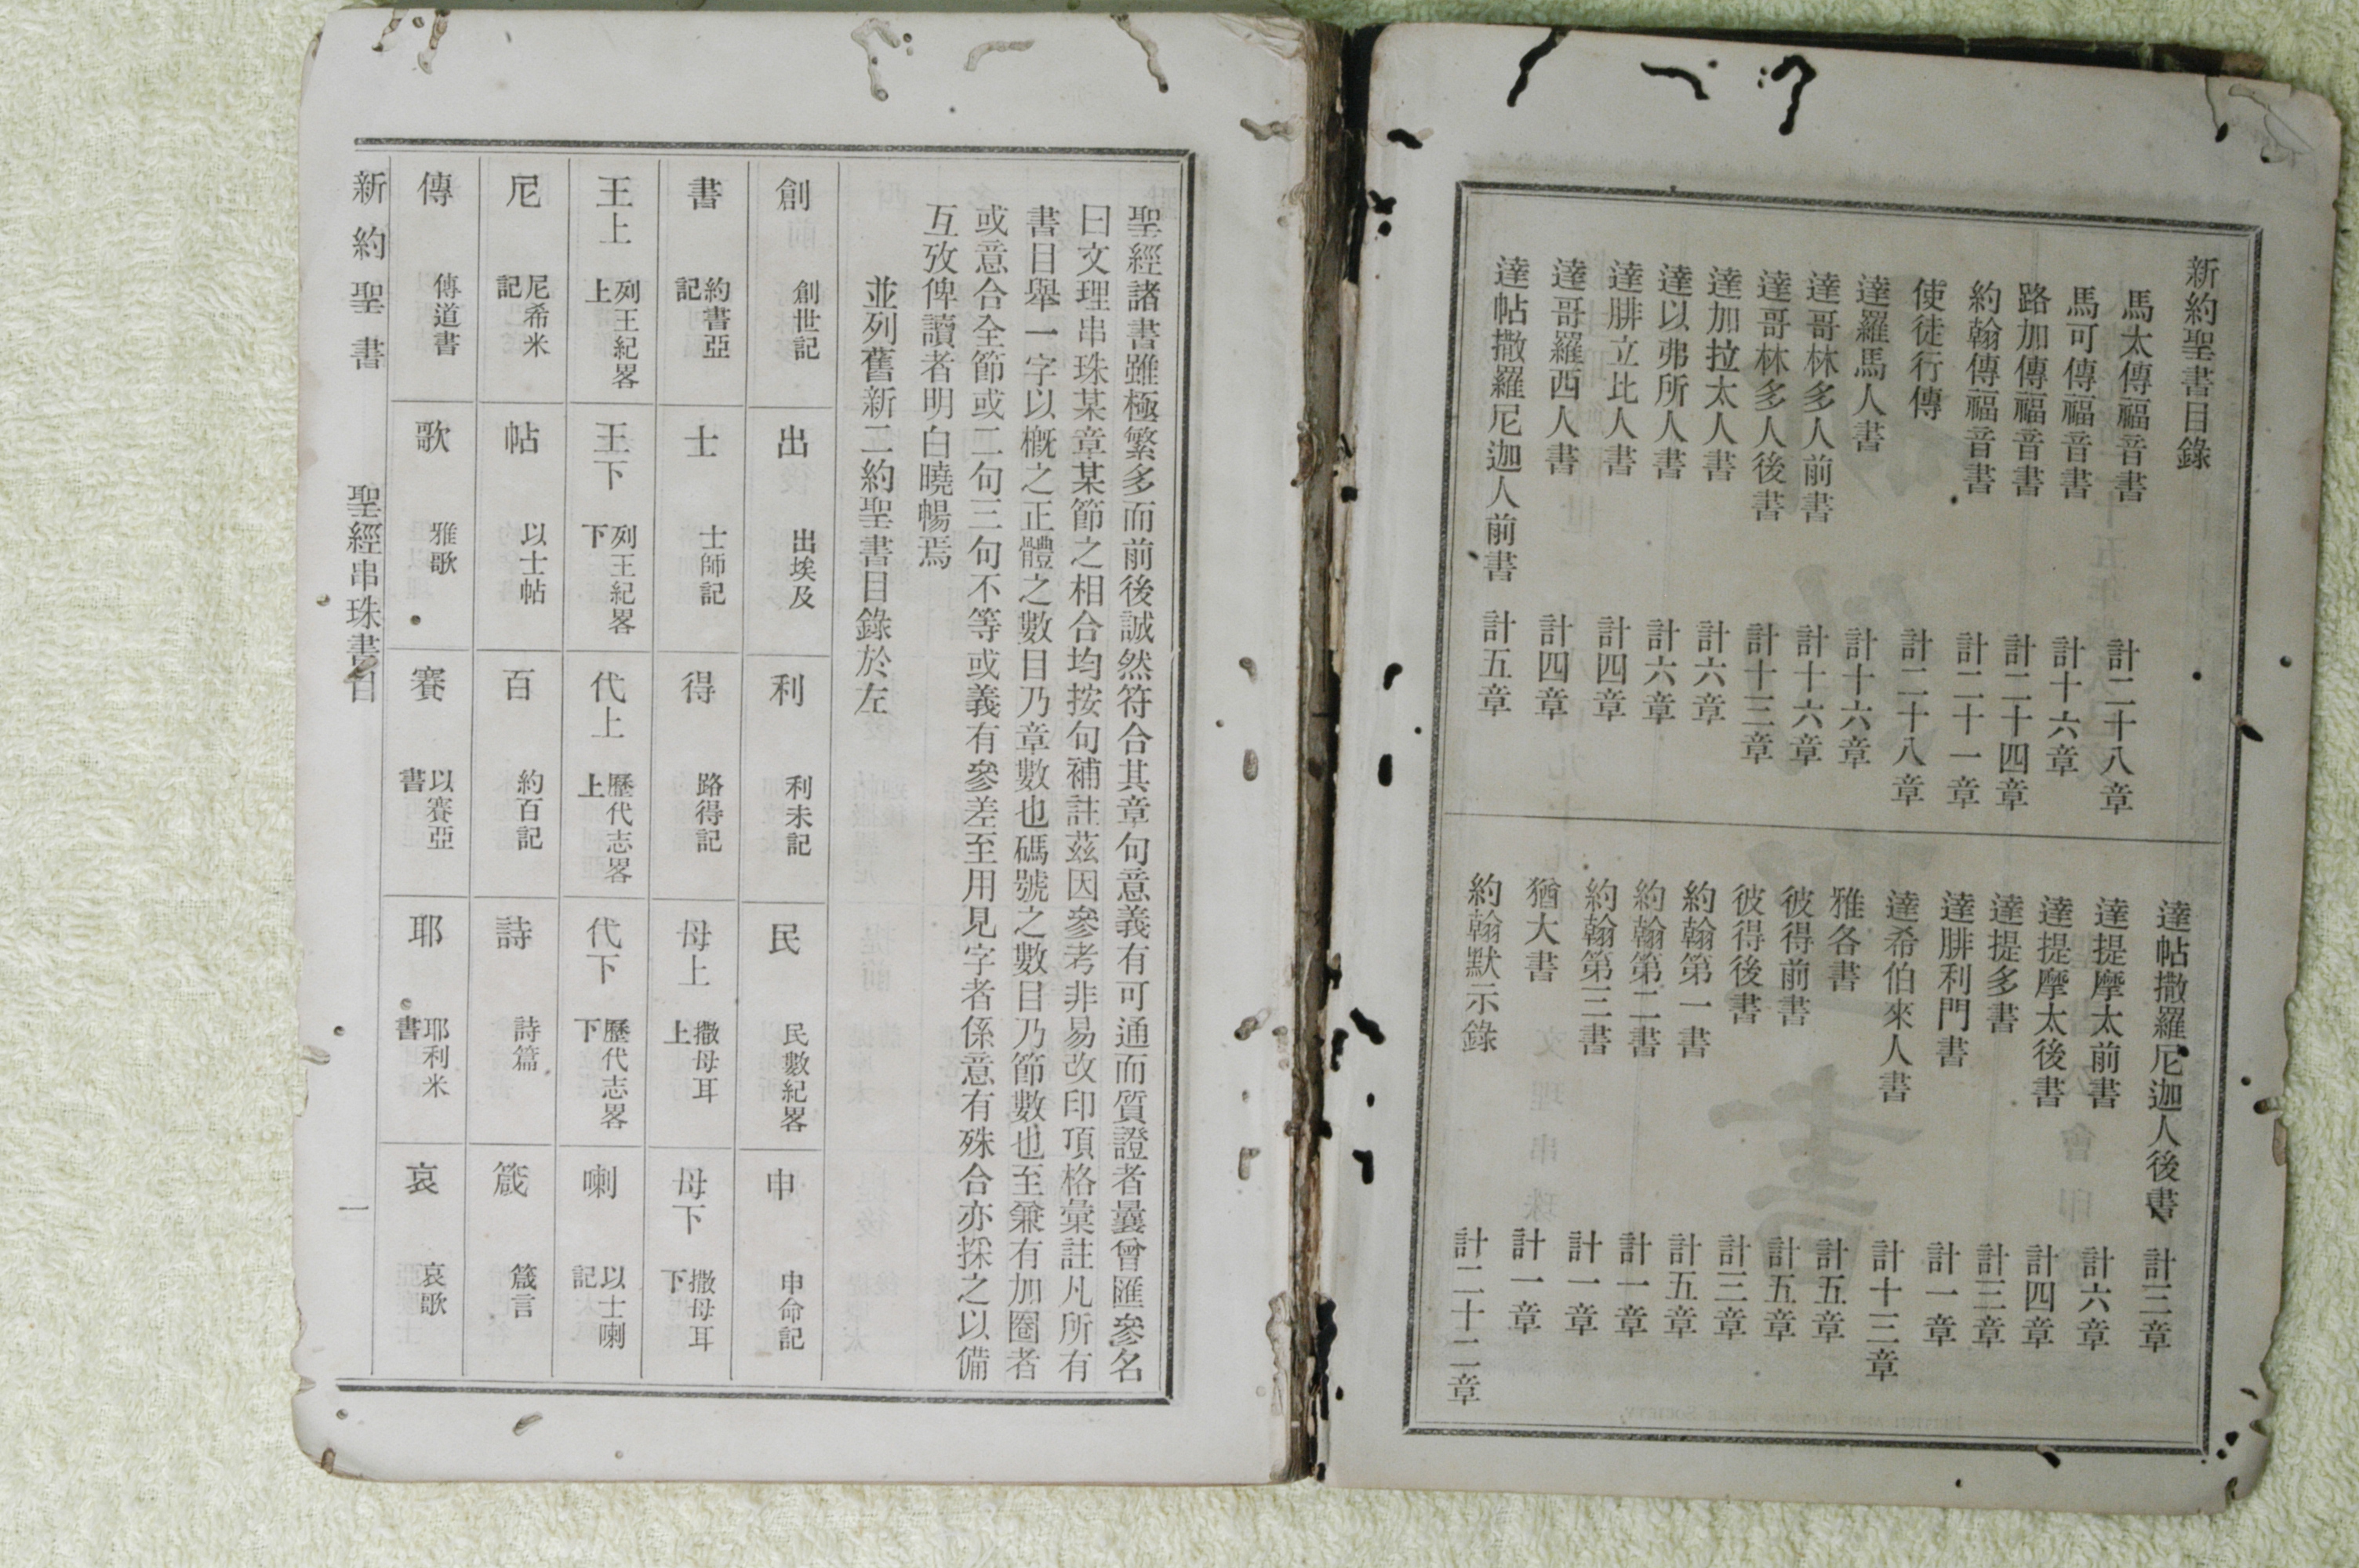 新約聖書目錄
馬太傳福音書 計二十八章
馬可傳福音書 計十六章
路加傳福音書 計二十四章
約翰傳福音書 計二十一章
使徒行傳 計二十八章
達羅馬人書 計十六章
達哥林多人前書 計十六章
達哥林多人後書 計十三章
達加拉太人書 計六章
達以弗所人書 計六章
達腓立比人書 計四章
達哥羅西人書 計四章
達帖撒羅尼迦人前書 計五章
達帖撒羅尼迦人後書 計三章
達提摩太前書 計六章
達提摩太後書 計四章
達提多書 計三章
達腓利門書 計一章
達希伯來人書 計十三章
雅各書 計五章
彼得前書 計五章
彼得後書 計三章
約翰第一書 計五章
約翰第二書 計一章
約翰第三書 計一章
猶大書 計一章
約翰默示錄 計二十二章
聖經諸書雖極繁多而前後誠然符合其章句意義有可通而質證者曩曾匯參名
曰文理串珠某章某節之相合均按句補註茲因參考非易改印項格彙註凡所有
書目舉一字以概之正體之數目乃章數也碼號之數目乃節數也至兼有加圈者
或意合全節或二句三句不等或義有參差至用見字者係意有殊合亦採之以備
互攷俾讀者明白曉暢焉
並列舊新二約聖書目錄於左
創 創世記
出 出埃及
利 利未記
民 民數紀畧
申 申命記
書 約書亞記
士 士師記
得 路得記
母上 撒母耳上
母下 撒母耳下
王上 列王紀畧上
王下 列王紀畧下
代上 歷代志畧上
代下 歷代志畧下
喇 以士喇記
尼 尼希米記
帖 以士帖
百 約百記
詩 詩篇
箴 箴言
傳 傳道書
歌 雅歌
賽 以賽亞書
耶 耶利米書
哀 哀歌
新約聖書 聖經串珠書目 一